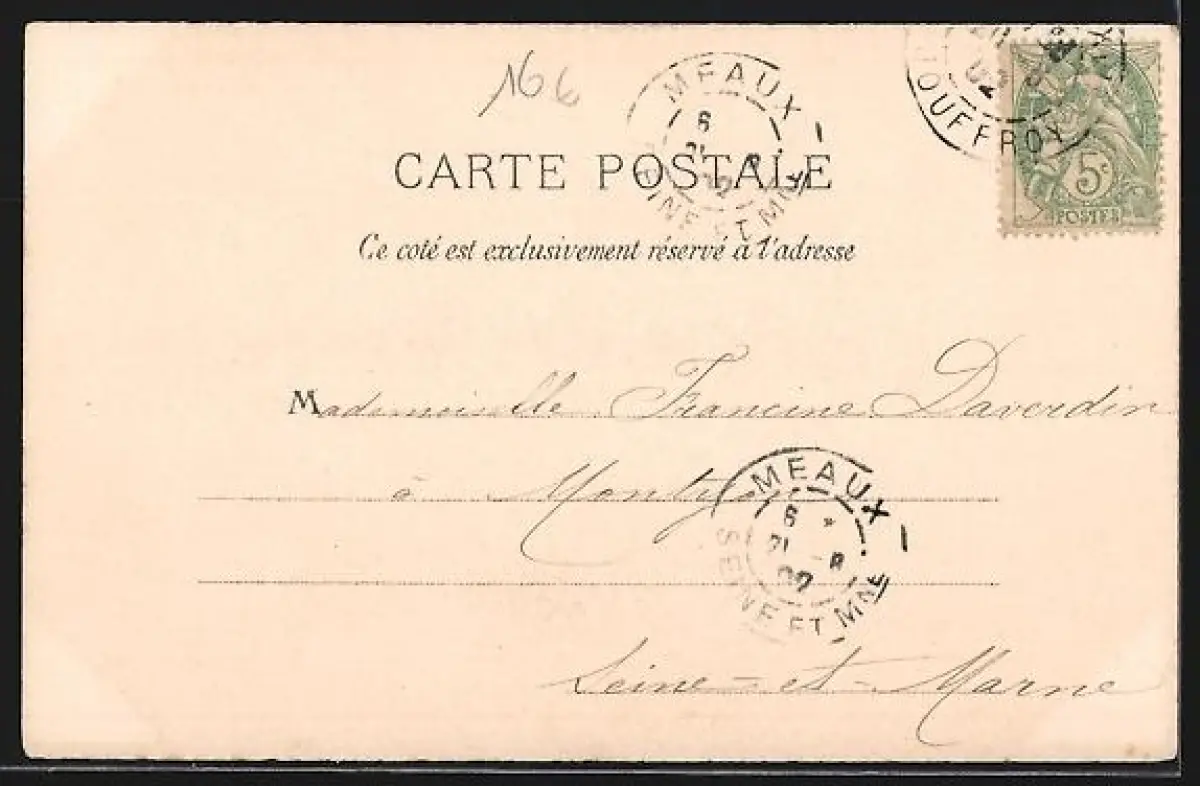 16 €
MEAUX
6
21 8
02
SEINE ET MNE
02
JOUFFROY
5c
POSTES
CARTE POSTALE
Ce coté est exclusivement réservé à l'adresse
Mademoiselle Francine Daverdin
à Monthyon
MEAUX
6 *
21 - 8
02
SEINE ET MNE
Seine-et-Marne